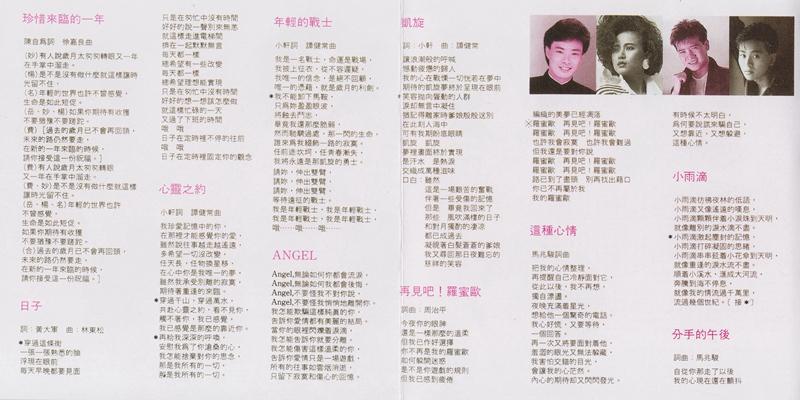 珍惜來臨的一年
陳自為詞 徐嘉良曲
(妙)有人說歲月太匆匆轉眼又一年
在手掌中溜走。
(楊)是不是沒有做什麼就這樣讓時
光留不住。
(名)年輕的世界也許不曾感覺，
生命是如此短促。
(岳、妙、楊)如果你期待有收穫
不要猶豫不要躊跎。
(費)[過去的歲月已不會再回頭，
未來的路仍然要走。
在新的一年來臨的時候，
請你接受這一份祝福。]
(費)有人說歲月太匆匆
又一年在手掌中溜走。
(費、妙)是不是沒有做什麼就這樣
讓時光留不住。
(岳、楊、名)年輕的世界也許
不曾感覺，
生命是如此短促。
如果你期待有收穫
不要猶豫不要躊跎。
(合)過去的歲月已不會再回頭，
未來的路仍然要走。
在新的一年來臨的時候，
請你接受這一份祝福。]
日子
詞：黃大軍 曲：林東松
*穿過這條街
一張一張熟悉的臉
浮現在眼前
每天早晚都要見面
只是在匆忙中沒有時間
好好的說一聲別來無恙
就這樣走進電梯間
擠在一起默默無言
每天都一樣
總希望有一些改變
每天都一樣
總希望理想能實現
只是在匆忙中沒有時間
好好的想一想該怎麼做
就這樣忙碌的一天
又過了下班的時間
哦 哦
日子在定時裡不停的往前
哦 哦
日子在定時裡固定你的觀念
心靈之約
小軒詞 譚健常曲
我珍愛記憶中的你，
在那裡才能感覺你的愛，
雖然說往事越走越遙遠，
多希望一切沒改變，
任天長，任物換星移，
在心中你是我唯一的夢，
雖然我承受別離的寂寞，
期待著重逢的來臨。
*穿過千山，穿過萬水，
共赴心靈之約，看不見你，
觸不著你，我已感覺，
我已感覺是那麼的靠近你。
*再給我深深的呼喚，
安慰我為了你滄桑的心，
我怎能捨棄對你的思念，
那是我所有的一切。
那是我所有的一切。
年輕的戰士
小軒詞 譚健常曲
我是一名戰士，命運是戰場，
我披上征衣，從不容遲疑。
我唯一的信念，是絕不回顧，
唯一的憑藉，就是歲月的利劍。
*我不能卸下馬鞍，
只為妳盈盈眼波，
將鮮去鬥志，
畢竟我還那麼脆弱。
然而馳騁過處，那一閃的生命，
誰來為我繡飾一路的寂寞，
任前途坎坷，任青春漸失，
我將永遠是那叱咤的勇士。
請妳，伸出雙臂，
請妳，伸出雙臂，
請妳，伸出雙臂，
等待遠征的戰士。
我是年輕戰士，我是年輕戰士，
我是年輕戰士，我是年輕戰士，
哦……哦……哦……
ANGEL
Angel,無論如何你都會流淚，
Angel,無論如何我都會後悔，
Angel,不要怪我不對你說，
Angel,不要怪我悄悄地離開你，
我怎能欺騙這樣純真的你，
告訴你愛情都有美麗的結局，
當你的眼裡閃爍着淚滴，
我怎能告訴你就要分離，
我怎能傷害這樣溫柔的你，
告訴你愛情只是一場遊戲，
所有的往事如雲烟消逝，
只留下寂寞和傷心的回憶。
凱旋
詞：小軒 曲：譚健常
讓浪潮般的呼喊
感動疲憊的歸人
我的心在戰慄一切恍若在夢中
期待的凱旋夢終於呈現在眼前
*笑容拋向簇動的人群
淚却無言中凝住
猶記得離家時爹娘殷殷送別
在此刻人海中
可有我期盼底眼睛
凱旋 凱旋
夢裡畫面終於實現
是汗水 是熱淚
交織成萬種滋味
口白 雖然
這是一場艱苦的奮戰
伴著一些受傷的記憶
但是 畢竟我回來了
那些 風吹滿樓的日子
和對月獨酌的淒涼
都已成過去
凝視著白髮蒼蒼的爹娘
我又尋回那日夜難忘的
慈祥的笑容
再見吧！羅蜜歐
詞曲：周治平
今夜你的眼眸
還是一樣那麼的溫柔
但我已作好選擇
你不再是我的羅蜜歐
如何能夠迷惑
是不是你遊戲的規則
但我已感到疲倦
編織的美夢已經凋落
※羅蜜歐 再見吧！羅蜜歐
羅蜜歐 再見吧！羅蜜歐
也許我會寂寞 也許我會難過
但我還是要對你說
羅蜜歐 再見吧！羅蜜歐
羅蜜歐 再見吧！羅蜜歐
路已到了盡頭 別再找出藉口
你已不再屬於我
我的羅蜜歐
這種心情
馬兆駿詞曲
把我的心情整理，
再提醒自己冷靜面對它，
從此以後，我不再想，
獨自漂盪。
夜晚充滿着星光，
想給他一個驚奇的電話，
我心好慌，又要等待，
一個回答。
再一次又將要面對着他，
羞澀的眼光又無法躲藏，
我害怕交錯的目光，
會讓我的心茫然。
內心的期待却又閃閃發光，
有時候不太明白，
為何要說謊來騙自己，
又想靠近，又想躲避，
這種心情。
小雨滴
小雨滴彷彿夜林的低語，
小雨滴又像遙遠的嘆息，
小雨滴顆顆伴着小淚珠到天明，
就像離別的淚水滴不盡，
*小雨滴激起塵封的記憶，
小雨滴打碎凝固的思緒，
小雨滴串串挂着小花傘到天明，
就像重逢的淚水流不盡，
順着小溪水，滙成大河流，
奔騰到海不停息，
就像我的情流過千萬里，
流過幾個世紀。〔 接*〕
分手的午後
詞曲：馬兆駿
自從你那走了以後
我的心現在還在顫抖